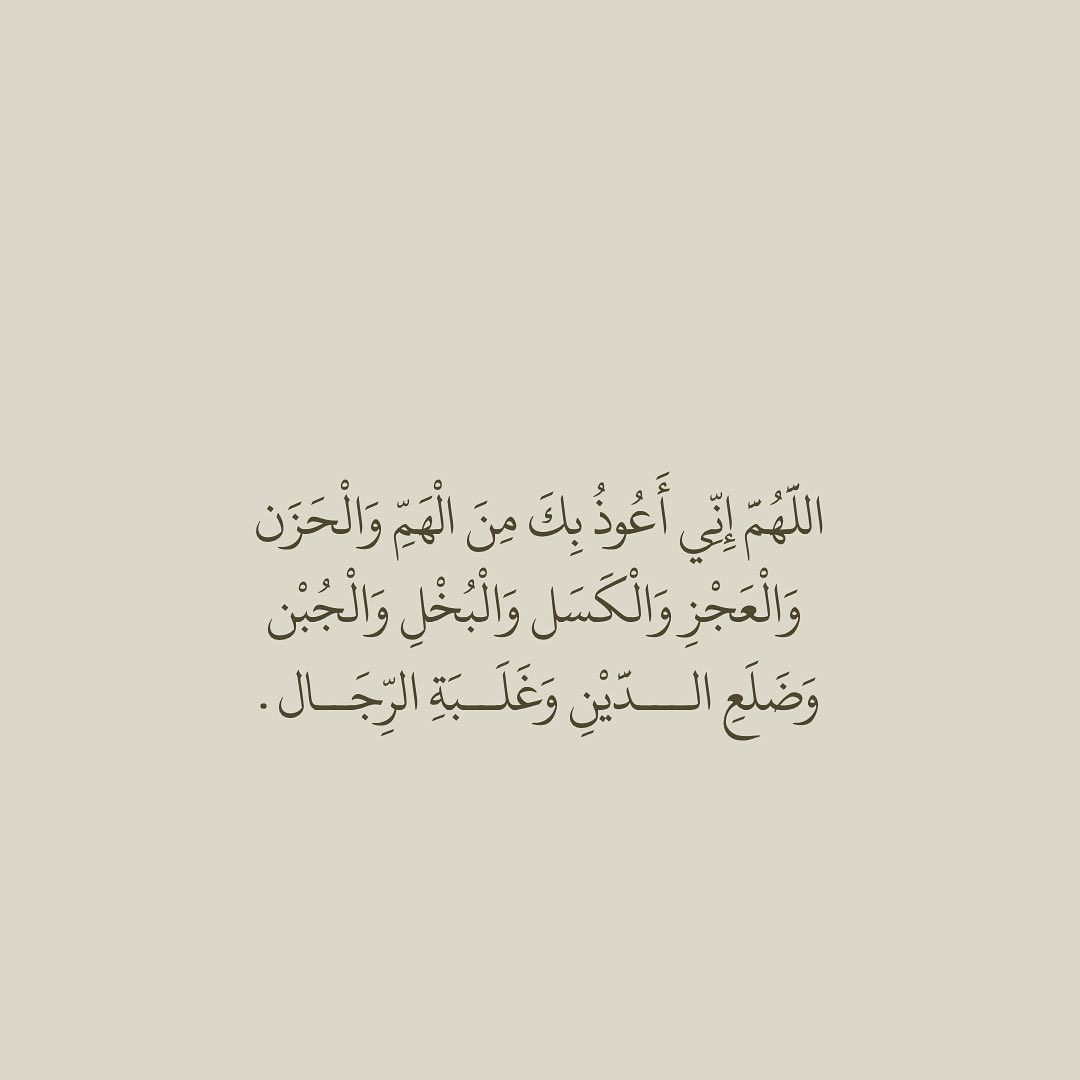 اللَّهُمَّ إِنِّي أَعُوذُ بِكَ مِنَ الْهَمِّ وَالْحَزَن
وَالْعَجْزِ وَالْكَسَل وَالْبُخْلِ وَالْجُبْن
وَضَلَعِ الـــدّيْنِ وَغَلَـــبَةِ الرِّجَـــال .